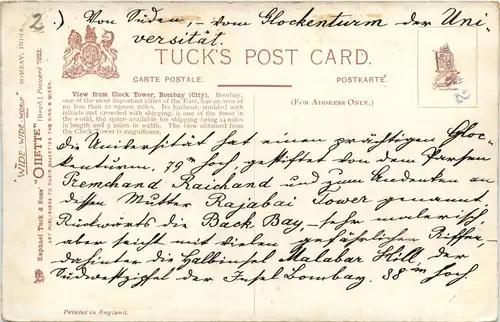 2.) Von Süden, - vom Glockenturm der Uni-
versität.
TUCK'S POST CARD.
CARTE POSTALE.
POSTKARTE.
(FOR ADDRESS ONLY.)
View from Clock Tower, Bombay (City). Bombay,
one of the most important cities of the East, has an area of
no less than 22 square miles. Its harbour, studded with
islands and crowded with shipping, is one of the finest in
the world, the space available for shipping being 14 miles
in length and 5 miles in width. The view obtained from
the Clock Tower is magnificent.
"WIDE-WIDE-WORLD" BOMBAY, INDIA.
"OILETTE" (Regd.) Postcard 7022.
Raphael Tuck & Sons'
ART PUBLISHERS TO THEIR MAJESTIES THE KING & QUEEN.
2
die Universität hat einen prächtigen Gloc-
kenturm, 79m hoch, gestiftet von dem Parsen
Premchand Raichand und zum Andenken an
dessen Mutter Rajabai Tower genannt.
Rückwärts die Back Bay, - sehr malerisch,
aber seicht mit vielen gefährlichen Riffen,
dahinter die Halbinsel Malabar Hill, der
Südwestzipfel der Insel Bombay. 38m hoch.
Printed in England.